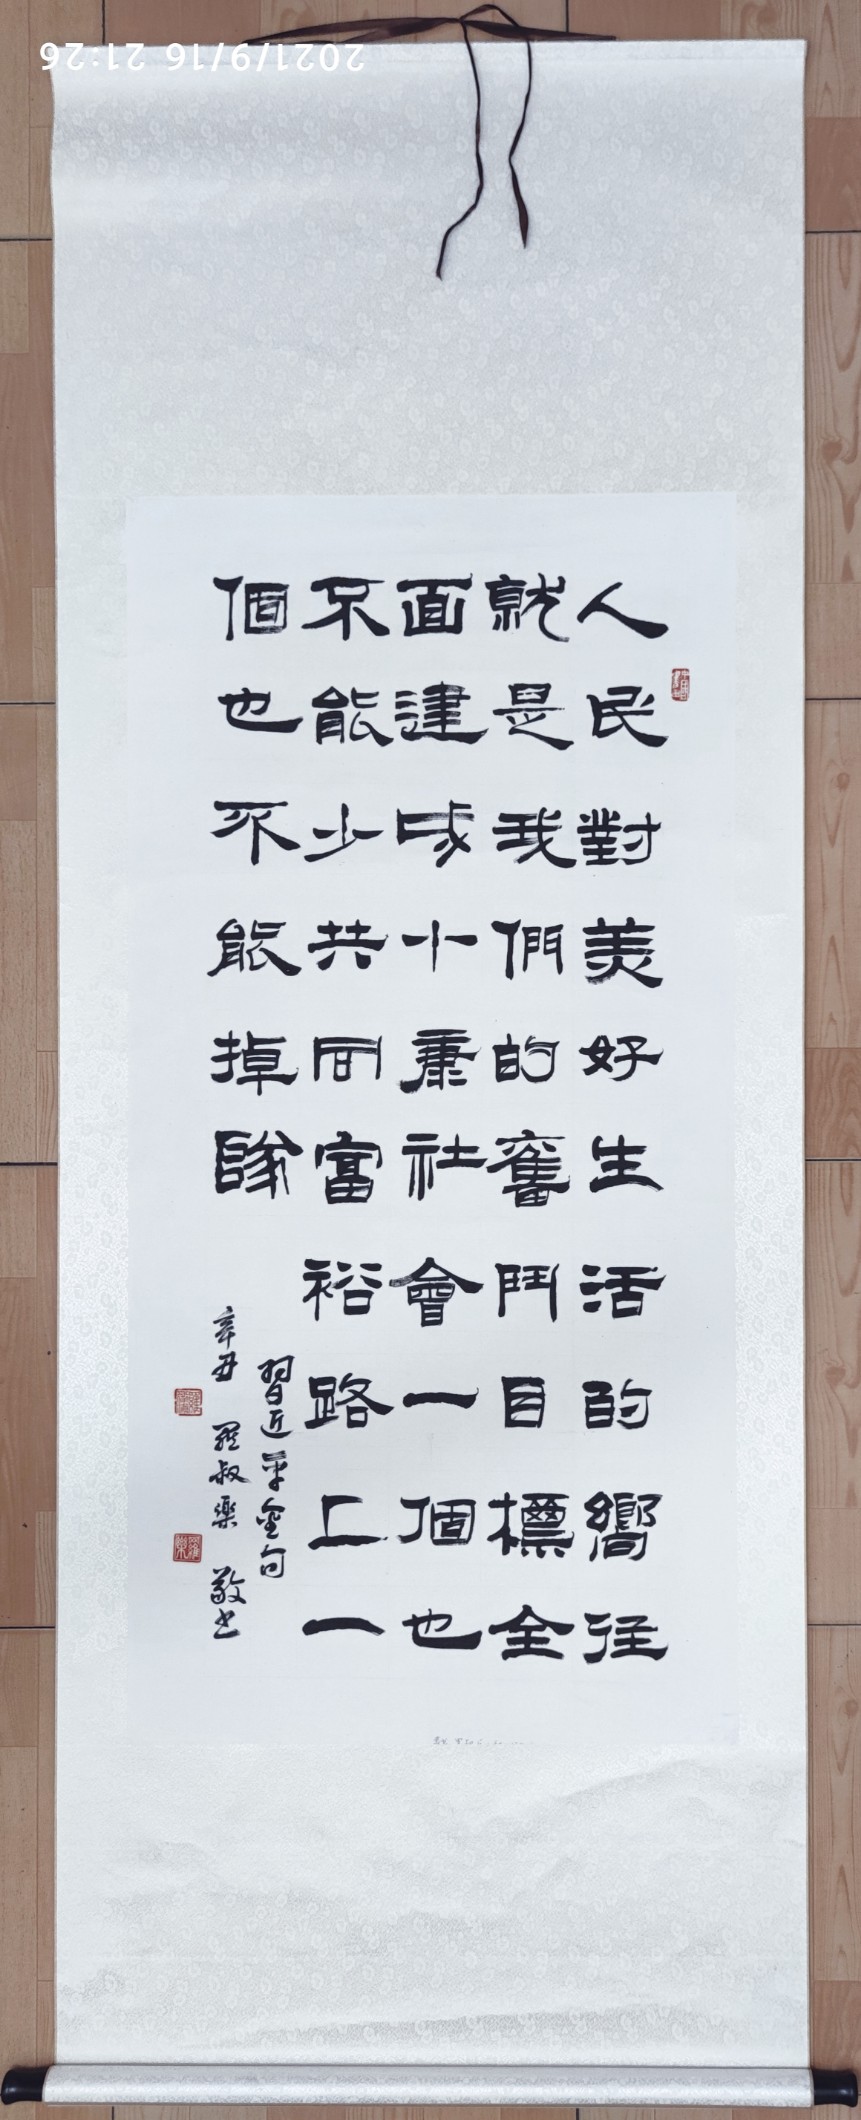 2021/9/16 21:26
人民對美好生活的嚮往
就是我們的奮鬥目標全
面建成小康社會一個也
不能少共同富裕路上一
個也不能掉隊
習近平金句
辛丑 羅叔樂 敬书